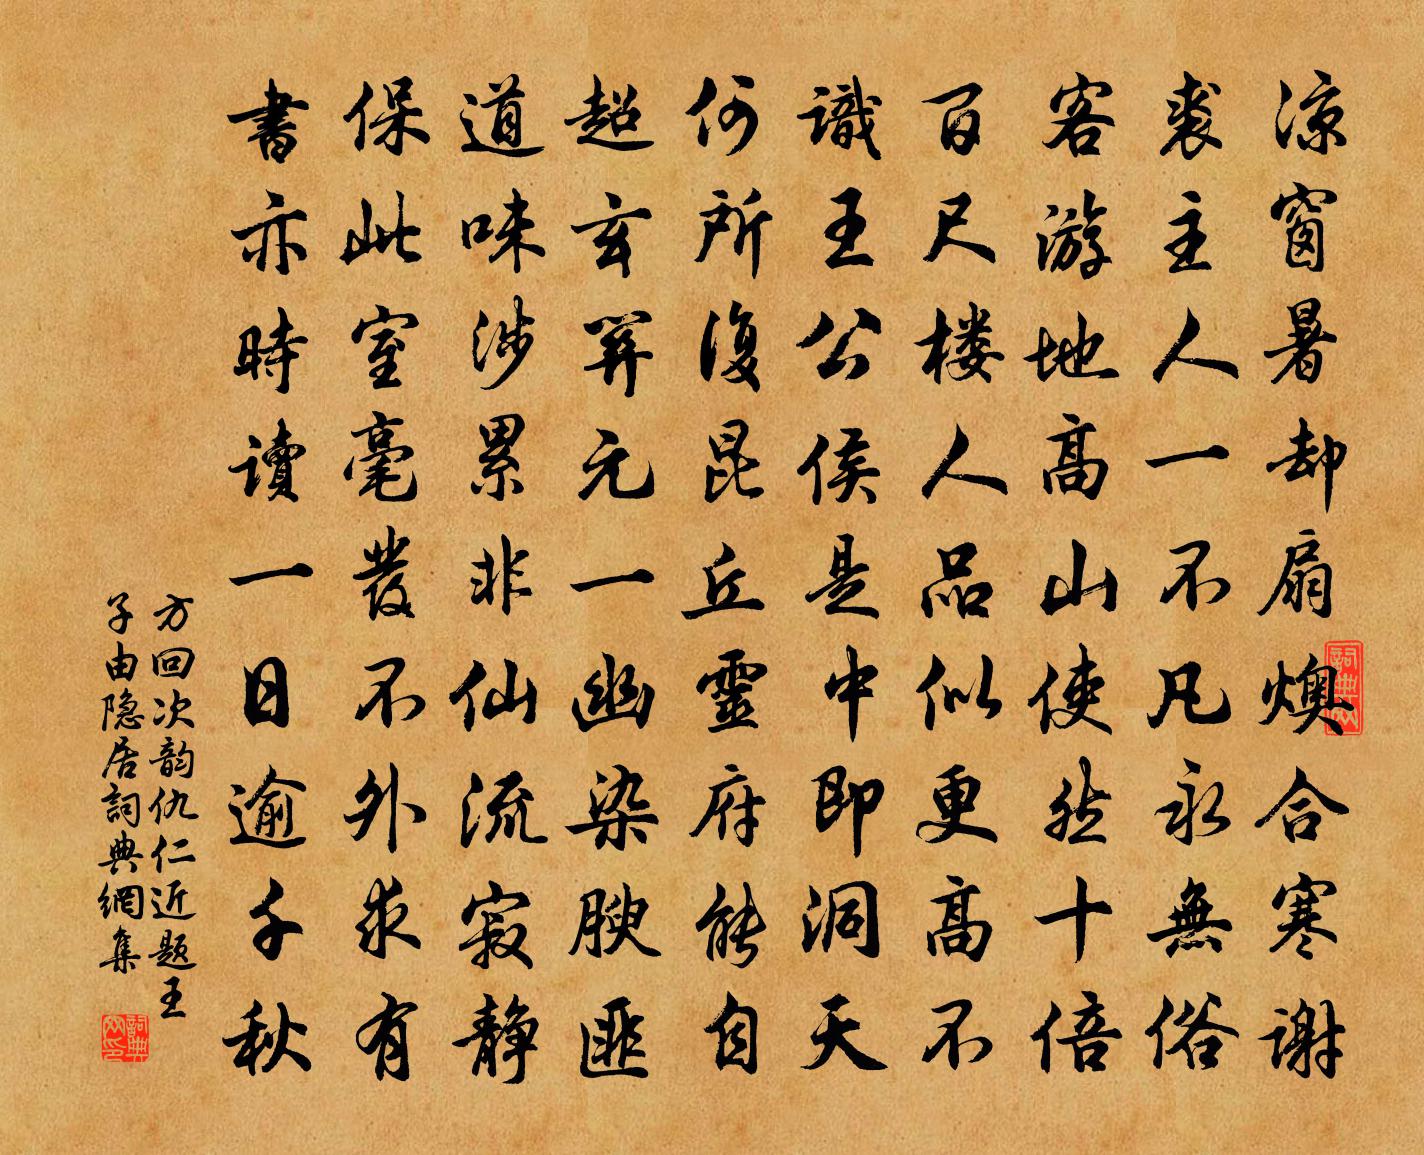 涼窗暑却扇燠合寒謝
裘主人一不凡永無俗
客游地高山使然十倍
百尺楼人品似更高不
識王公侯是中即洞天
何所復昆丘靈府能自
超玄冥元一幽染腴匪
道味涉累非仙流寂静
保此室毫發不外求有
書亦時讀一日逾千秋
方回次韵仇仁近题王
子由隐居詞典網集
詞典